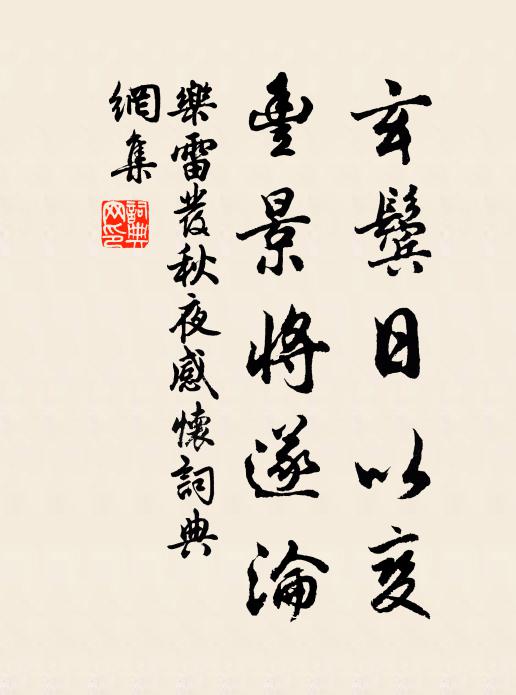 玄鬓日以变
豊景将遂淪
樂雷發秋夜感懷詞典
網集
詞典網印